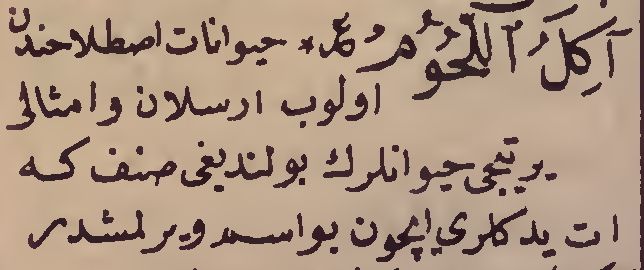 آكِلُ اللُّحُومُ عم٭ حيوانات اصطلاحندن
اولوب ارسلان وامثالى
يرتيجى حيوانلرك بولنديغى صنف كه
ات يدكلري ايچون بو اسم ويرلمشدر